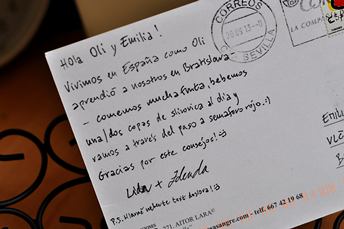 Hola Oli y Emilia!
Vivimos en España como Oli
aprendió a nosotros en Bratislava
– comemos mucha fruta, bebemos
una/dos copas de slivovica al día y
vamos a través del paso a semáforo rojo. :)
Gracias por este consejos! :-)
Lida + Zdenda
P.S.
CORREOS
SEVILLA
LA COMPA
EMILI
AITOR LARA
telf. 667 42 19 68